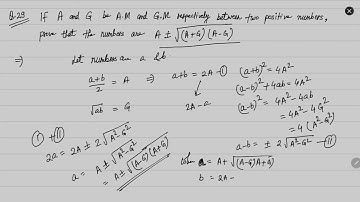 Q.29 If A and G be A.M and G.M respectively between two positive numbers,
prove that the numbers are A ± √(A+G)(A-G)
⇒ Let numbers are a & b
a+b/2 = A ⇒ a+b = 2A - Ⓘ
√ab = G
2A-a
(a+b)² = 4A²
(a-b)² + 4ab = 4A²
(a-b)² = 4A² - 4ab
= 4A² - 4G²
= 4(A²-G²)
a-b = ± 2√A²-G² - Ⅱ
Ⓘ + Ⅱ
2a = 2A ± 2√A²-G²
a = A ± √A²-G²
= A ± √(A-G)(A+G)
When a = A + √(A-G)(A+G)
b = 2A -